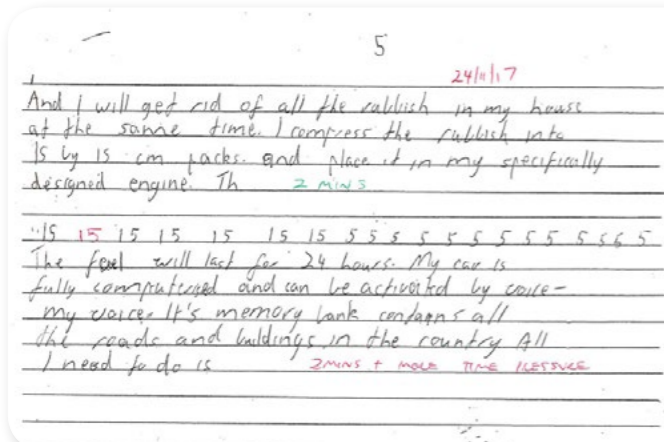 5
24/11/17
And I will get rid of all the rubbish in my house
at the same time. I compress the rubbish into
15 by 15 cm packs. and place it in my specifically
designed engine. Th 2 MINS
15 15 15 15 15 15 15 5 5 5 5 5 5 5 5 5 5 5 6 5
The fuel will last for 24 hours. My car is
fully computerised and can be activated by voice-
my voice. It's memory bank contains all
the roads and buildings in the country All
I need to do is 2 MINS + MORE TIME PRESSURE